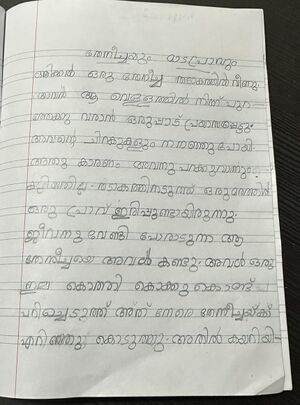 തേനീച്ചയും മാടപ്രാവും
ഒരിക്കൽ ഒരു തേനീച്ച തടാകത്തിൽ വീണു.
അവൻ ആ വെള്ളത്തിൽ നിന്ന് പുറ-
ത്തേക്കു വരാൻ ഒരുപ്പാട് പ്രയാസപ്പെട്ടു.
അവന്റെ ചിറകുകളും നനഞ്ഞു പോയി.
അതു കാരണം അവനു പറക്കുവാനും
കഴിഞ്ഞില്ല. തടാകത്തിനടുത്ത് ഒരു മരത്തിൽ
ഒരു പ്രാവ് ഇരിപ്പുണ്ടായിരുന്നു.
ജീവനു വേണ്ടി പോരാടുന്ന ആ
തേനീച്ചയെ അവൾ കണ്ടു. അവൾ ഒരു
ഇല കൊത്തി കൊക്കു കൊണ്ട്
പറിച്ചെടുത്ത് അത് നേരെ തേനീച്ചയ്ക്ക്
എറിഞ്ഞു കൊടുത്തു. അതിൽ കയറിയി-